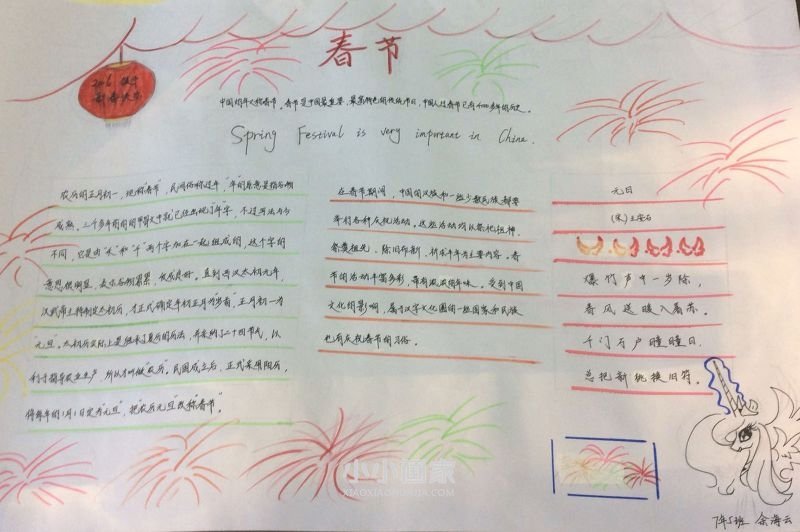 春节
2016 猴年
新春快乐
中国的年又称春节。春节是中国最重要,最富特色的传统节日,中国人过春节已有4000多年的历史。
Spring Festival is very important in China.
农历的正月初一,现称“春节”,民间俗称过年,“年”的原意是指谷物
成熟。三个多年前的甲骨文中就已经出现了“年”字,不过写法与今
不同,它是由“禾”和“千”两个字加在一起组成的,这个字的
意思很明显,表示谷物累累,收成良好。直到西汉太初元年,
汉武帝主持制定太初历,才正式确定年初正月为“岁首”,正月初一为
元旦”。太初历实际上是继承了夏历的历法,并采纳了二十四节气,以
利于指导农业生产,所以才叫做“农历”。民国成立后,正式采用阳历,
将每年的1月1日定为“元旦”,把“农历元旦”改称春节”。
在春节期间,中国的汉族和一些少数民族都要
举行各种庆祝活动。这些活动均以祭祀祖神、
祭奠祖先、除旧布新、祈求丰年为主要内容。春
节的活动丰富多彩,带有浓浓的年味。受到中国
文化的影响,属于汉字文化圈的一些国家和民族
也有庆祝春节的习俗。
元日
(宋)王安石
爆竹声中一岁除,
春风送暖入屠苏。
千门万户曈曈日,
总把新桃换旧符。
小小画家
XIAOXIAOHUAJIA.COM
7年5班 余海云